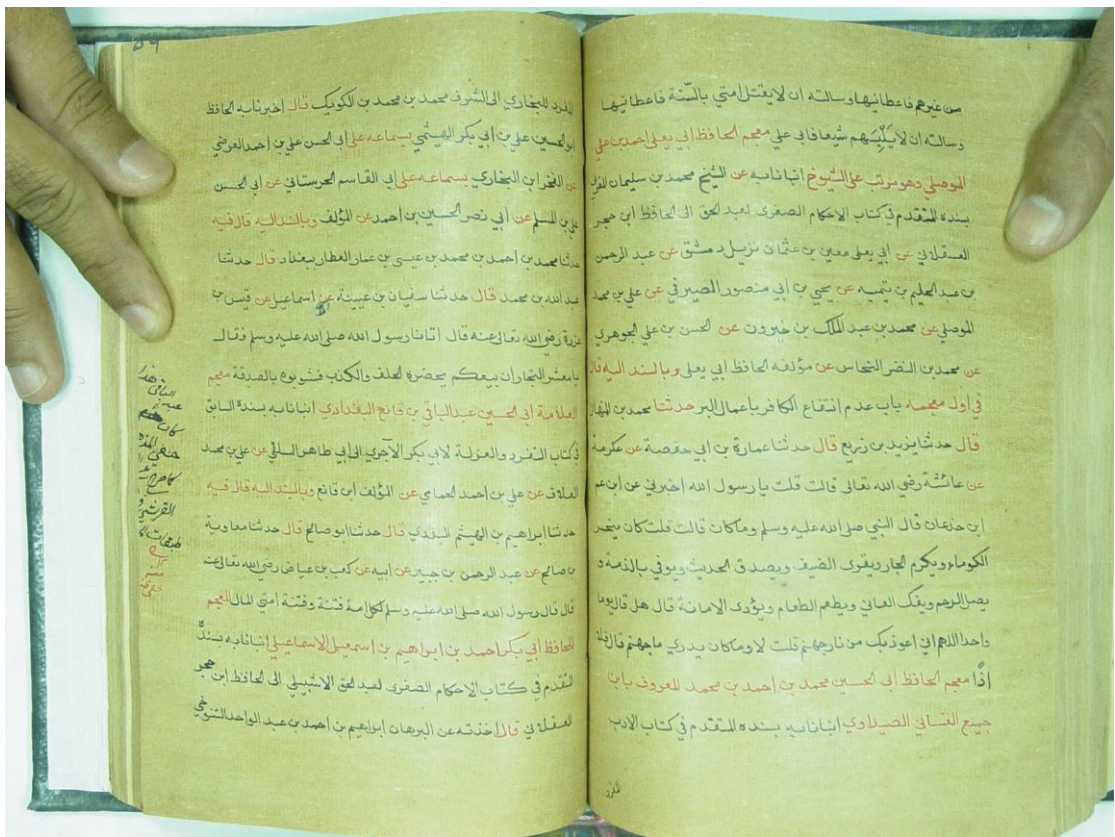 من غيرهم فاعطانيها وسالته ان لا يقتل امتي بالسنة فاعطانيها
وسالته ان لا يلبسهم شيعا فابى علي معجم الحافظ ابي يعلى احمد بن علي
الموصلي وهو مرتب على الشيوخ انبانا به عن الشيخ محمد بن سليمان المغربي
بسنده المتقدم في كتاب الاحكام الصغرى لعبد الحق الى الحافظ ابن حجر
العسقلاني عن ابي يعلى معين بن عثمان نزيل دمشق عن عبد الرحمن
بن عبد الحليم بن تيميه عن يحيى بن ابي منصور الصيرفي عن علي بن محمد
الموصلي عن محمد بن عبد الملك بن خيرون عن الحسن بن علي الجوهري
عن محمد بن النضر النحاس عن مؤلفه الحافظ ابي يعلى وبالسند اليه قال
في اول معجمه باب عدم انتفاع الكافر باعمال البر حدثنا محمد بن المنهال
قال حدثنا يزيد بن زريع قال حدثنا عمارة بن ابي حفصة عن عكرمة
عن عائشة رضي الله تعالى قالت قلت يا رسول الله اخبرني عن ابن عم
ابن جذعان قال النبي صلى الله عليه وسلم وما كان قالت قلت كان ينحر
الكوماء ويكرم الجار ويقري الضيف ويصدق الحديث ويوفي بالذمة و
يصل الرحم ويفك العاني ويطعم الطعام ويؤدي الامانة قال هل قال يوما
واحدا اللهم اني اعوذ بك من نار جهنم قلت لا وما كان يدري ما جهنم قال فلا
اذًا معجم الحافظ ابي الحسين محمد بن احمد بن محمد المعروف بابن
جميع الغساني الصيداوي انبانا به بسنده المتقدم في كتاب الادب
المفرد للبخاري الى الشرف محمد بن محمد بن الكويك قال اخبرنا به الحافظ
ابو الحسين علي بن ابي بكر الهيثمي بسماعه على ابي الحسن علي بن احمد العرضي
عن الفخر ابن البخاري بسماعه على ابي القاسم الحرستاني عن ابي الحسن
علي بن المسلم عن ابي نصر الحسين بن احمد عن المؤلف وبالسند اليه قال فيه
حدثنا محمد بن احمد بن محمد بن عيسى بن عمار العطار ببغداد قال حدثنا
عبد الله بن محمد قال حدثنا سفيان بن عيينة عن اسماعيل عن قيس بن
غرزة رضي الله تعالى عنه قال اتانا رسول الله صلى الله عليه وسلم فقال
يا معشر التجار ان بيعكم يحضره الحلف والكذب فشوبوه بالصدقة معجم
العلامة ابي الحسين عبد الباقي بن قانع البغدادي انبانا به بسنده السابق
في كتاب التفرد والعزلة لابي بكر الآجري الى ابي طاهر السلفي عن علي بن محمد
العلاف عن علي بن احمد الحمامي عن المؤلف ابن قانع وبالسند اليه قال فيه
حدثنا ابراهيم بن الهيثم البلدي قال حدثنا ابو صالح قال حدثنا معاوية
بن صالح عن عبد الرحمن بن جبير عن ابيه عن كعب بن عياض رضي الله تعالى عنه
قال قال رسول الله صلى الله عليه وسلم لكل امة فتنة وفتنة امتي المال المعجم
للحافظ ابي بكر احمد بن ابراهيم بن اسمعيل الاسماعيلي انبانا به بسنده
المتقدم في كتاب الاحكام الصغرى لعبد الحق الاشبيلي الى الحافظ ابن حجر
العسقلاني قال اخذته عن البرهان ابراهيم بن احمد بن عبد الواحد التنوخي
عبد الباقي هذا
كان
حنفي المذهب
القرشي
طبقات